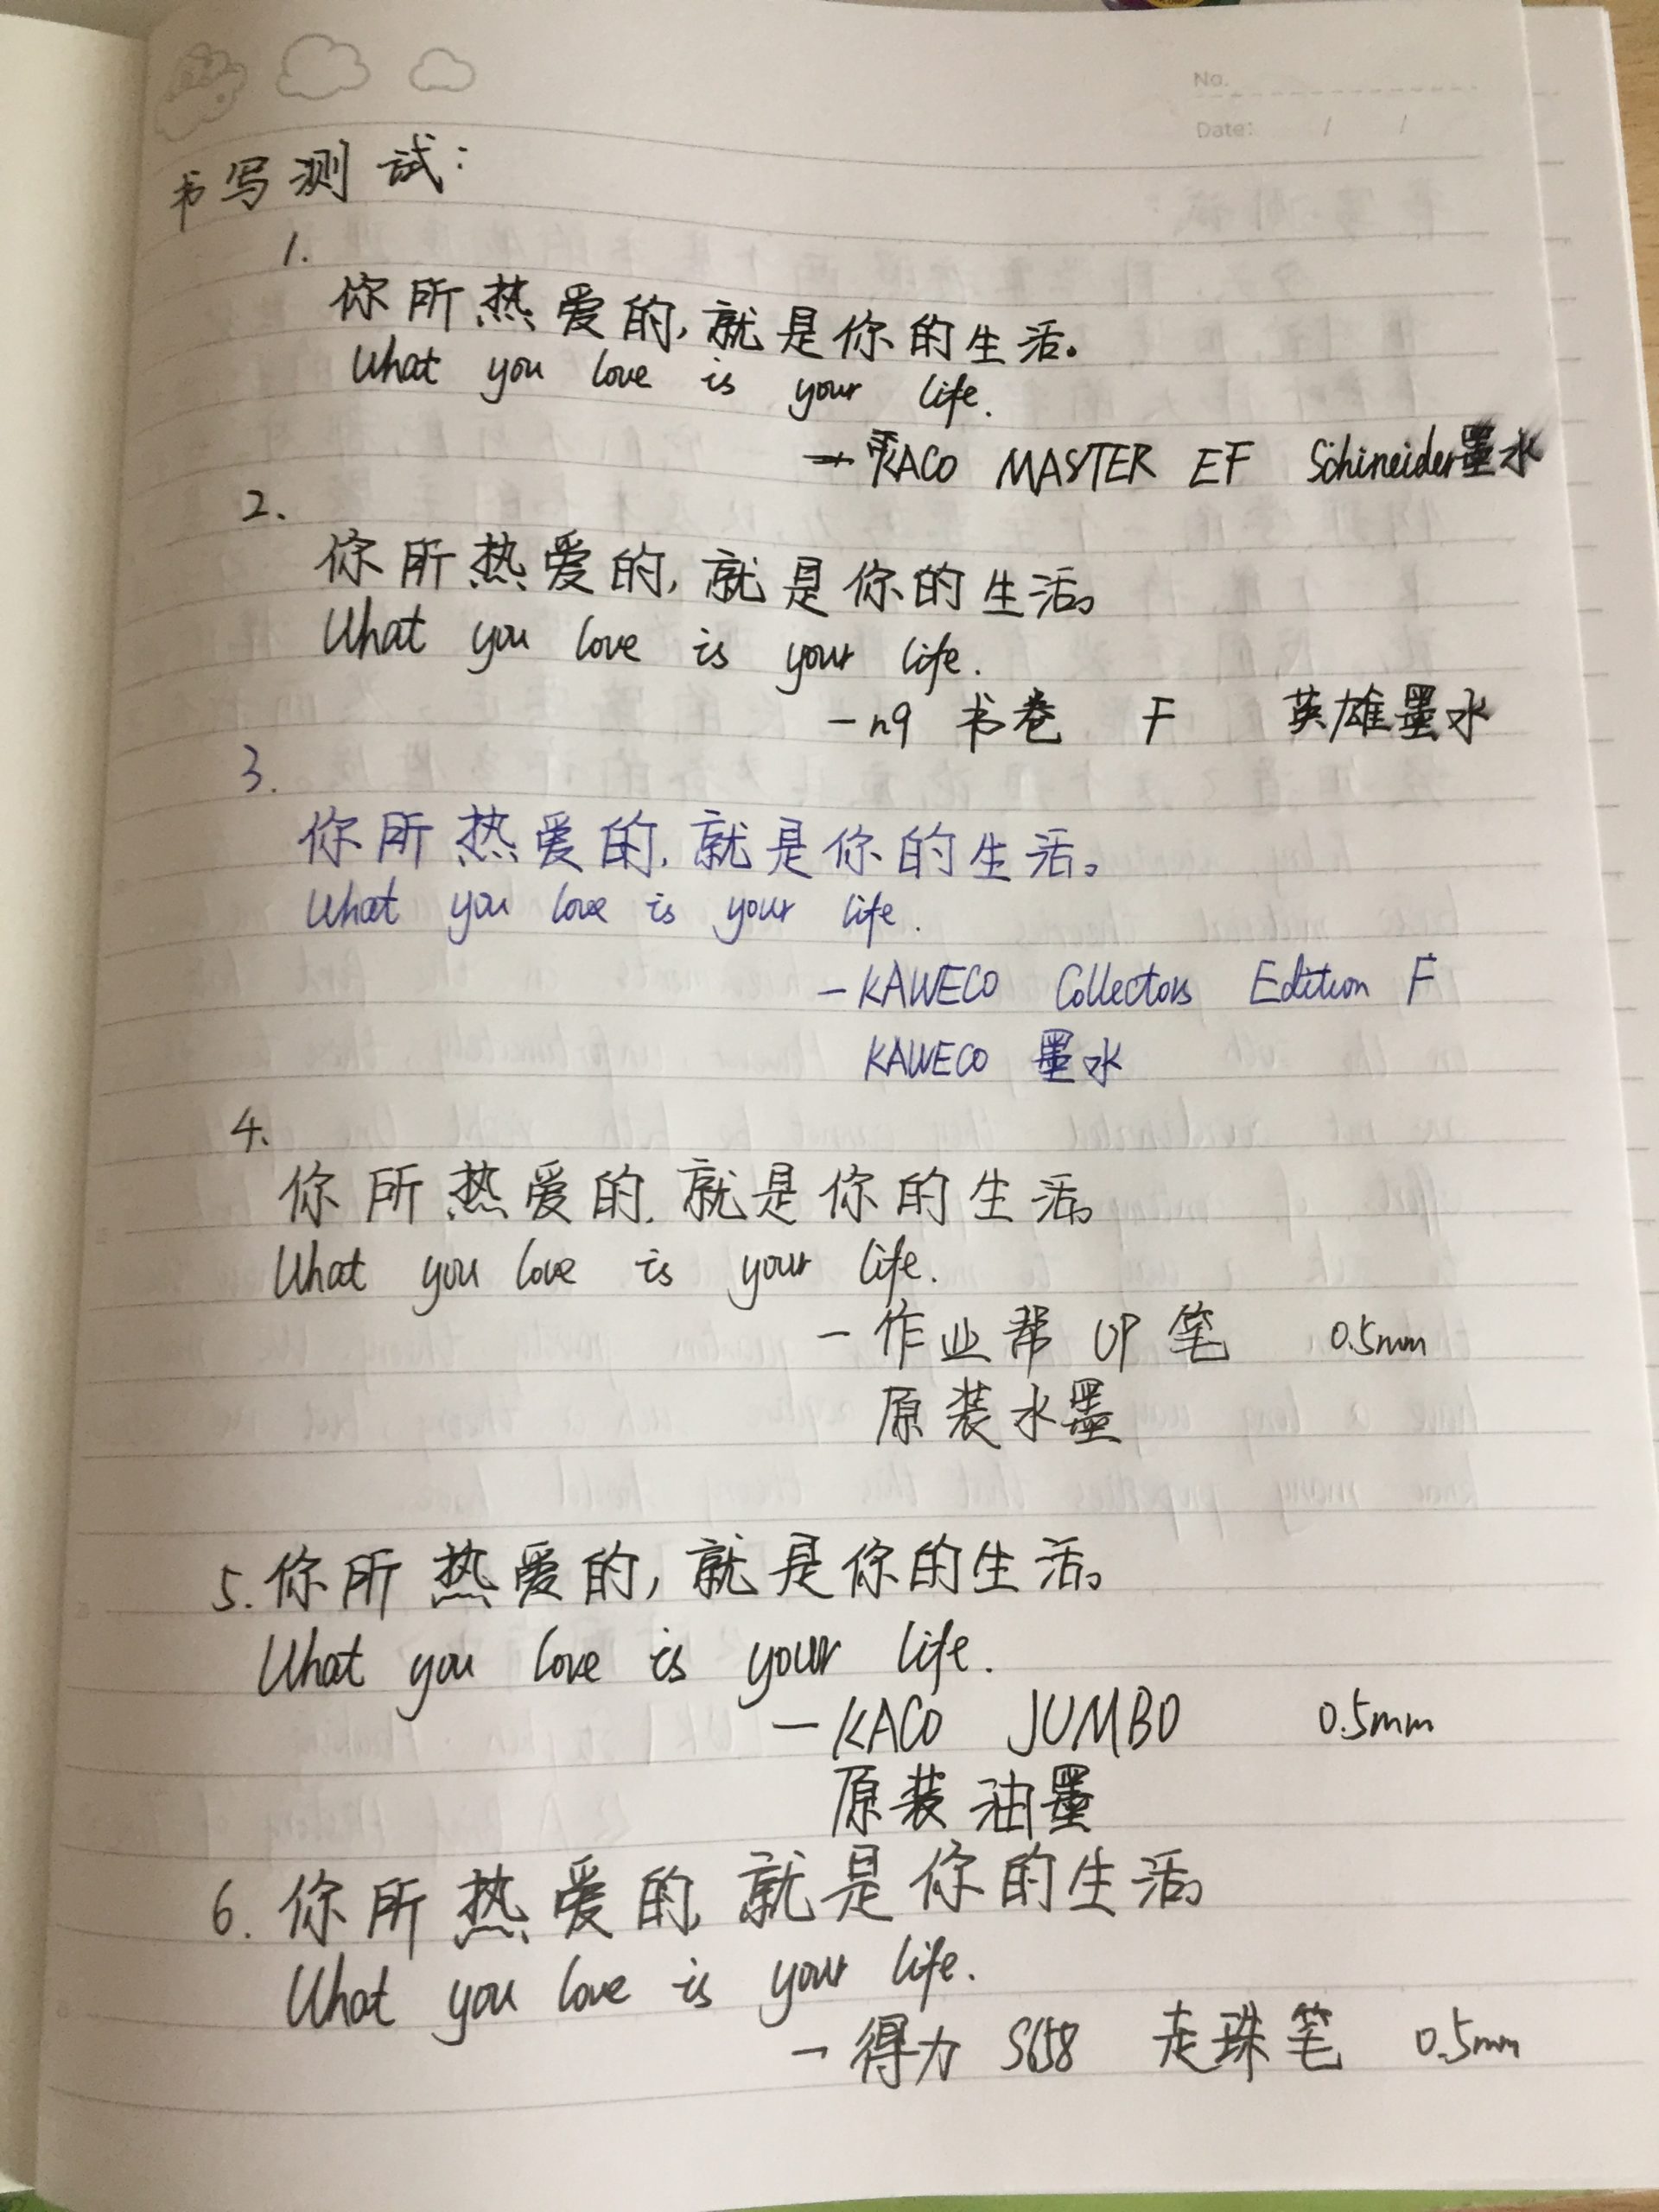 No.
Date: / /
书写测试:
1.
你所热爱的,就是你的生活。
What you love is your life.
— KACO MASTER EF Schineider墨水
2.
你所热爱的,就是你的生活。
What you love is your life.
— n9 书卷 F 英雄墨水
3.
你所热爱的,就是你的生活。
What you love is your life.
— KAWECO Collectors Edition F
KAWECO 墨水
4.
你所热爱的,就是你的生活。
What you love is your life.
— 作业帮 UP 笔 0.5mm
原装水墨
5. 你所热爱的,就是你的生活。
What you love is your life.
— KACO JUMBO 0.5mm
原装油墨
6. 你所热爱的,就是你的生活。
What you love is your life.
— 得力 S658 走珠笔 0.5mm